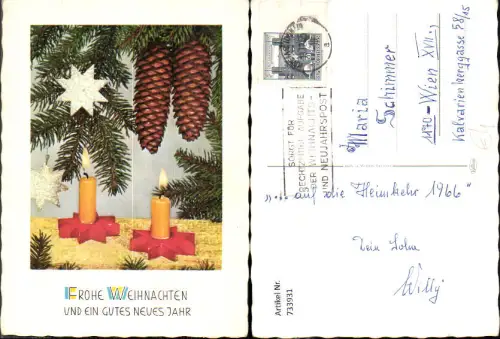 FROHE WEIHNACHTEN
UND EIN GUTES NEUES JAHR
SORGT FÜR
RECHTZEITIGE AUFGABE
DER WEIHNACHTS-
UND NEUJAHRSPOST
Maria
Schimmer
1170-Wien XVII.,
Kalvarienberggasse 58/15
"... auf die Heimkehr 1966"
Dein Sohn
Willy
Artikel Nr.
733931